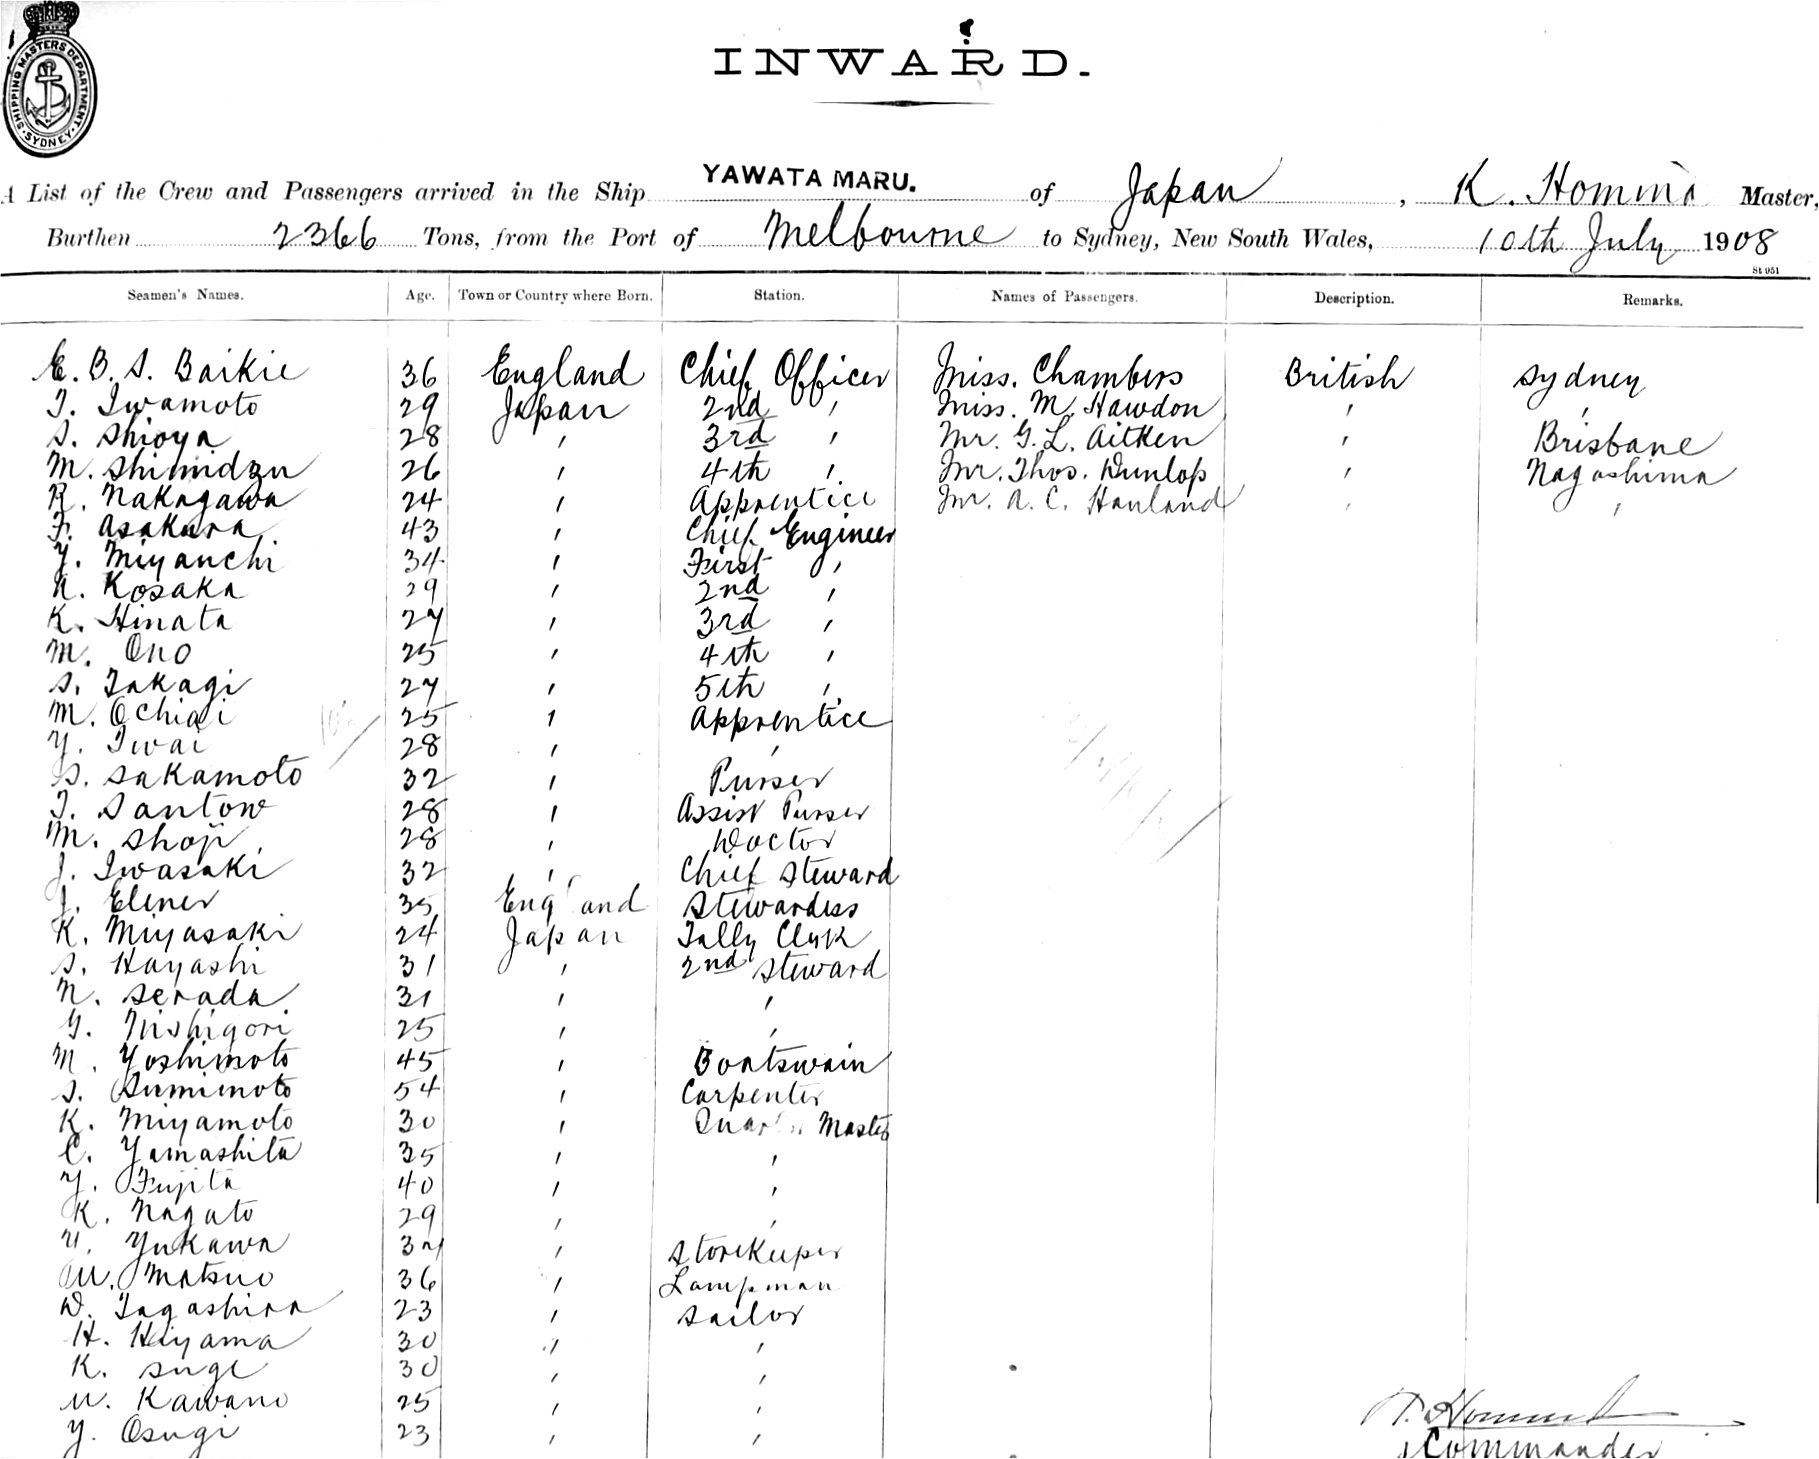 SHIPPING MASTERS DEPARTMENT. SYDNEY
INWARD.
A List of the Crew and Passengers arrived in the Ship YAWATA MARU. of Japan, K. Homma Master,
Burthen 2366 Tons, from the Port of Melbourne to Sydney, New South Wales, 10th July 1908
St 951
Seamen's Names. Age. Town or Country where Born. Station. Names of Passengers. Description. Remarks.
E. B. S. Baikie 36 England Chief Officer Miss. Chambers British Sydney
T. Iwamoto 29 Japan 2nd " Miss. M. Hawdon " "
S. Shioya 28 " 3rd " Mr. G. L. Aitken " Brisbane
M. Shimidzu 26 " 4th " Mr. Thos. Dunlop " Nagashima
R. Nakagawa 24 " Apprentice Mr. A. C. Hanland " "
F. Asakura 43 " Chief Engineer
Y. Miyanchi 34 " First "
K. Kosaka 29 " 2nd "
K. Hinata 27 " 3rd "
M. Ono 25 " 4th "
S. Takagi 27 " 5th "
M. Ochiai 25 " Apprentice
Y. Iwai 28 " "
S. Sakamoto 32 " Purser
T. Santow 28 " Assist Purser
M. Shoji 28 " Doctor
J. Iwasaki 32 " Chief Steward
J. Elener 35 England Stewardess
K. Miyasaki 24 Japan Tally Clerk
S. Hayashi 31 " 2nd Steward
N. Serada 31 " "
G. Nishigori 25 " "
M. Yoshimoto 45 " Boatswain
S. Sumimoto 54 " Carpenter
K. Miyamoto 30 " Quarter Master
C. Yamashita 35 " "
Y. Fujita 40 " "
K. Nagato 29 " "
Yukawa 37 " Storekeeper
M. Matsuo 36 " Lampman
D. Tagashira 23 " Sailor
H. Hiyama 30 " "
K. Suge 30 " "
U. Kawano 25 " "
Y. Osugi 23 " "
Homma
Commander